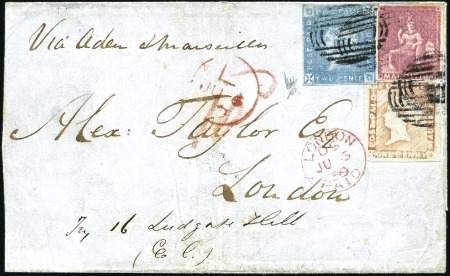 Via Aden & Marseilles
TWO PENCE
MAURITIUS
POST PAID
ONE PENNY
Alex: Taylor Esq
London
LONDON
JU
59
PAID
16 Ludgate Hill
(E C.)